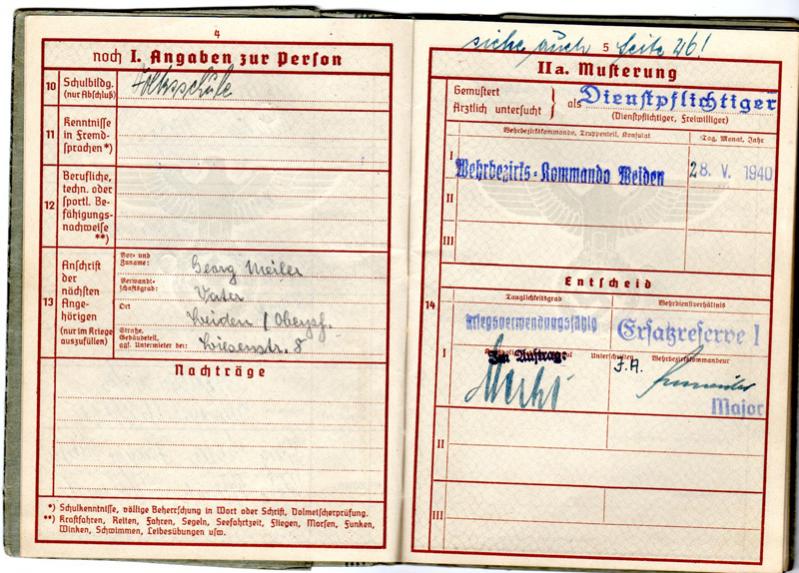 4
noch I. Angaben zur Person
10 Schulbildg. (nur Abschluß)
Volksschule
11 Kenntnisse in Fremdsprachen*)
12 Berufliche, techn. oder sportl. Befähigungsnachweise **)
13 Anschrift der nächsten Angehörigen (nur im Kriege auszufüllen)
Vor- und Zuname: Georg Meiler
Verwandtschaftsgrad: Vater
Ort Weiden / Oberpf.
Straße, Gebäudeteil, ggf. Untermieter bei: Wiesenstr. 8
Nachträge
*) Schulkenntnisse, völlige Beherrschung in Wort oder Schrift, Dolmetscherprüfung.
**) Kraftfahren, Reiten, Fahren, Segeln, Seefahrtzeit, Fliegen, Morsen, Funken,
Winken, Schwimmen, Leibesübungen usw.
siehe auch Seite 46!
5
IIa. Musterung
Gemustert
Ärztlich untersucht } als Dienstpflichtiger
(Dienstpflichtiger, Freiwilliger)
Wehrbezirkskommando, Truppenteil, Konsulat
Tag, Monat, Jahr
I Wehrbezirks-Kommando Weiden 28. V. 1940
II
III
Entscheid
14
Tauglichkeitsgrad
Wehrdienstverhältnis
I
kriegsverwendungsfähig
Ersatzreserve I
Im Auftrag:
Unterschriften
Wehrbezirkskommandeur
Major
II
III